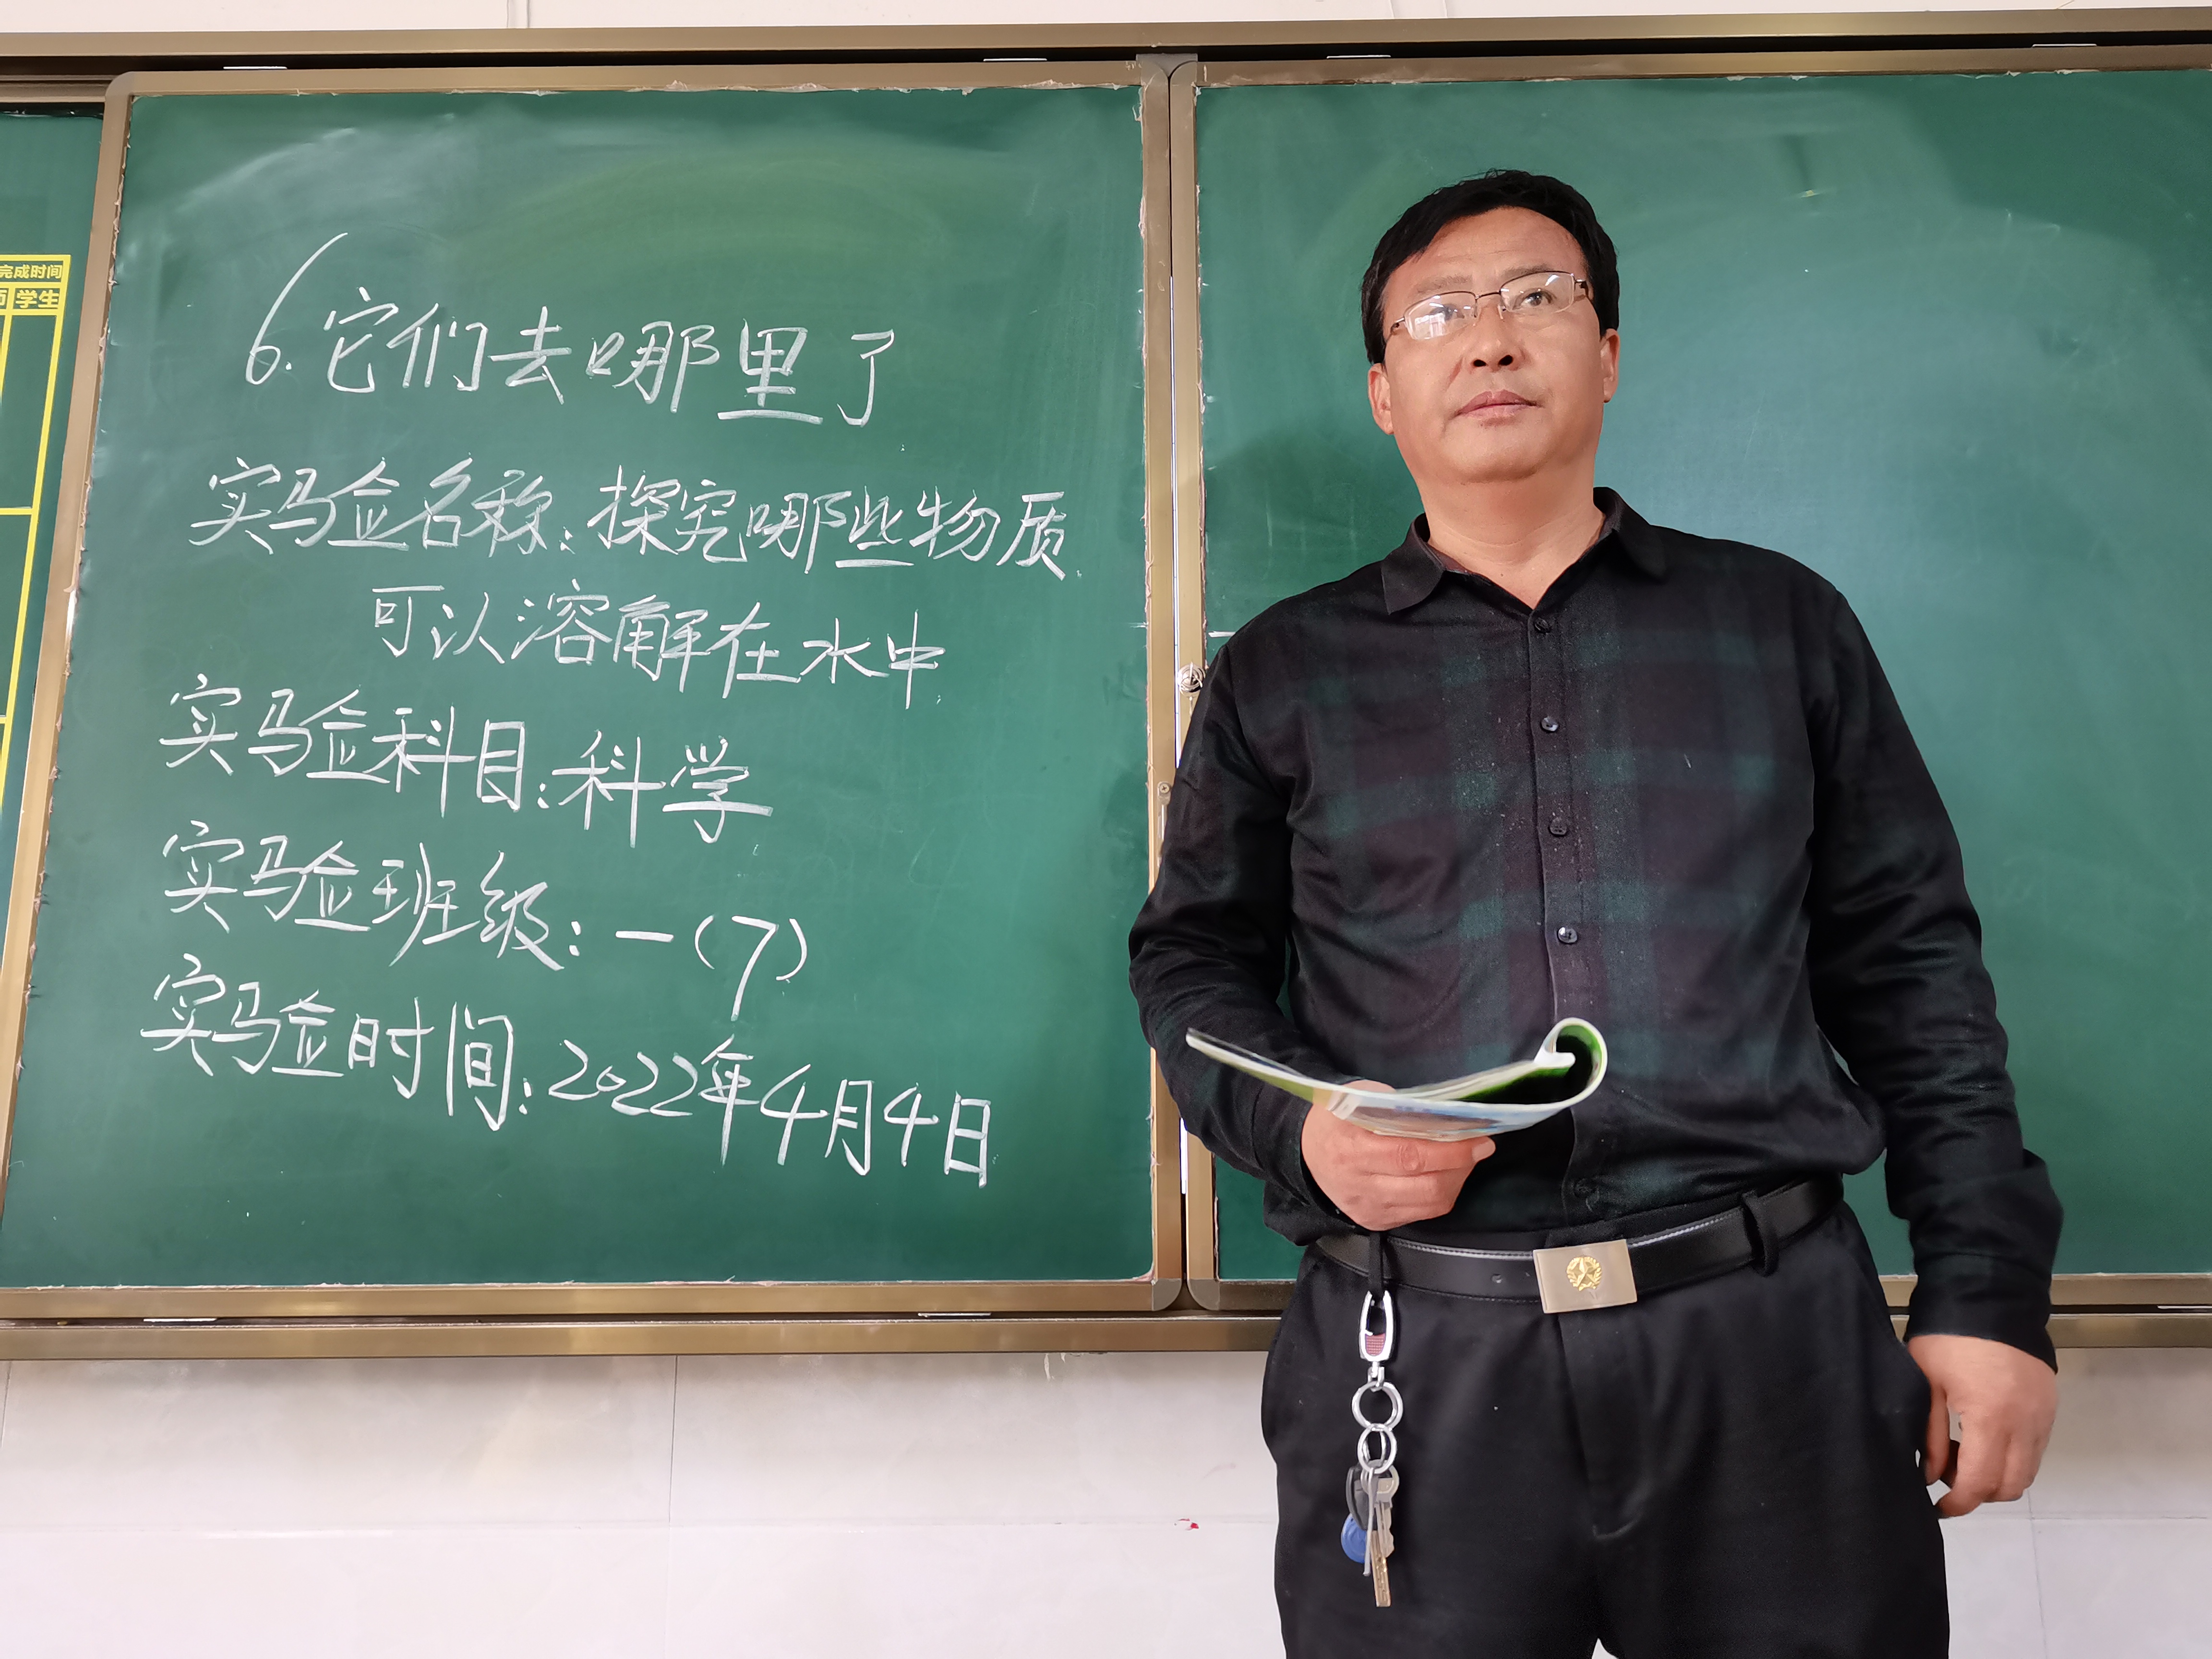 完成时间
学生
6.它们去哪里了
实验名称:探究哪些物质
可以溶解在水中
实验科目:科学
实验班级:一(7)
实验时间:2022年4月4日